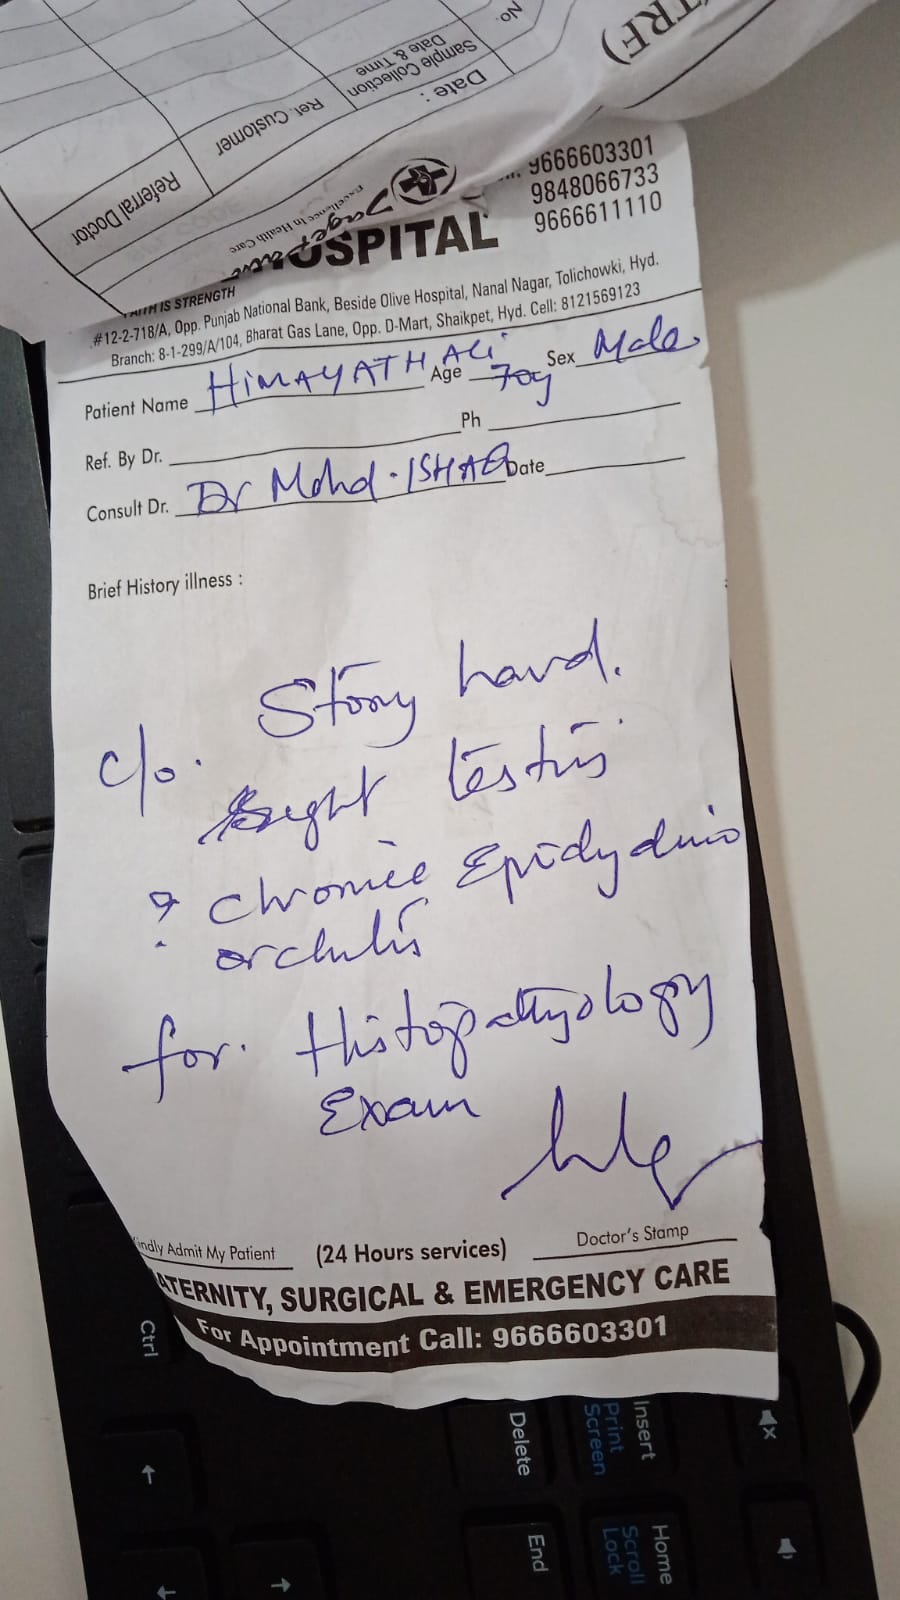 TRF)
No.
Date :
Sample Collection
Date & Time
Ref. Customer
Referral Doctor
Excellence In Health Care
9666603301
9848066733
9666611110
HOSPITAL
FAITH IS STRENGTH
#12-2-718/A, Opp. Punjab National Bank, Beside Olive Hospital, Nanal Nagar, Tolichowki, Hyd.
Branch: 8-1-299/A/104, Bharat Gas Lane, Opp. D-Mart, Shaikpet, Hyd. Cell: 8121569123
Patient Name HIMAYATH ALI Age 70y Sex Male
Ref. By Dr. Ph
Consult Dr. Dr Mohd. ISHAQ Date
Brief History illness :
c/o. Stony hard.
right testis
? chronic Epidydimo
orchitis
for. Histopathyology
Exam
Kindly Admit My Patient (24 Hours services) Doctor's Stamp
MATERNITY, SURGICAL & EMERGENCY CARE
For Appointment Call: 9666603301
Ctrl
Delete
Insert
Print
Screen
End
Home
Scroll
Lock